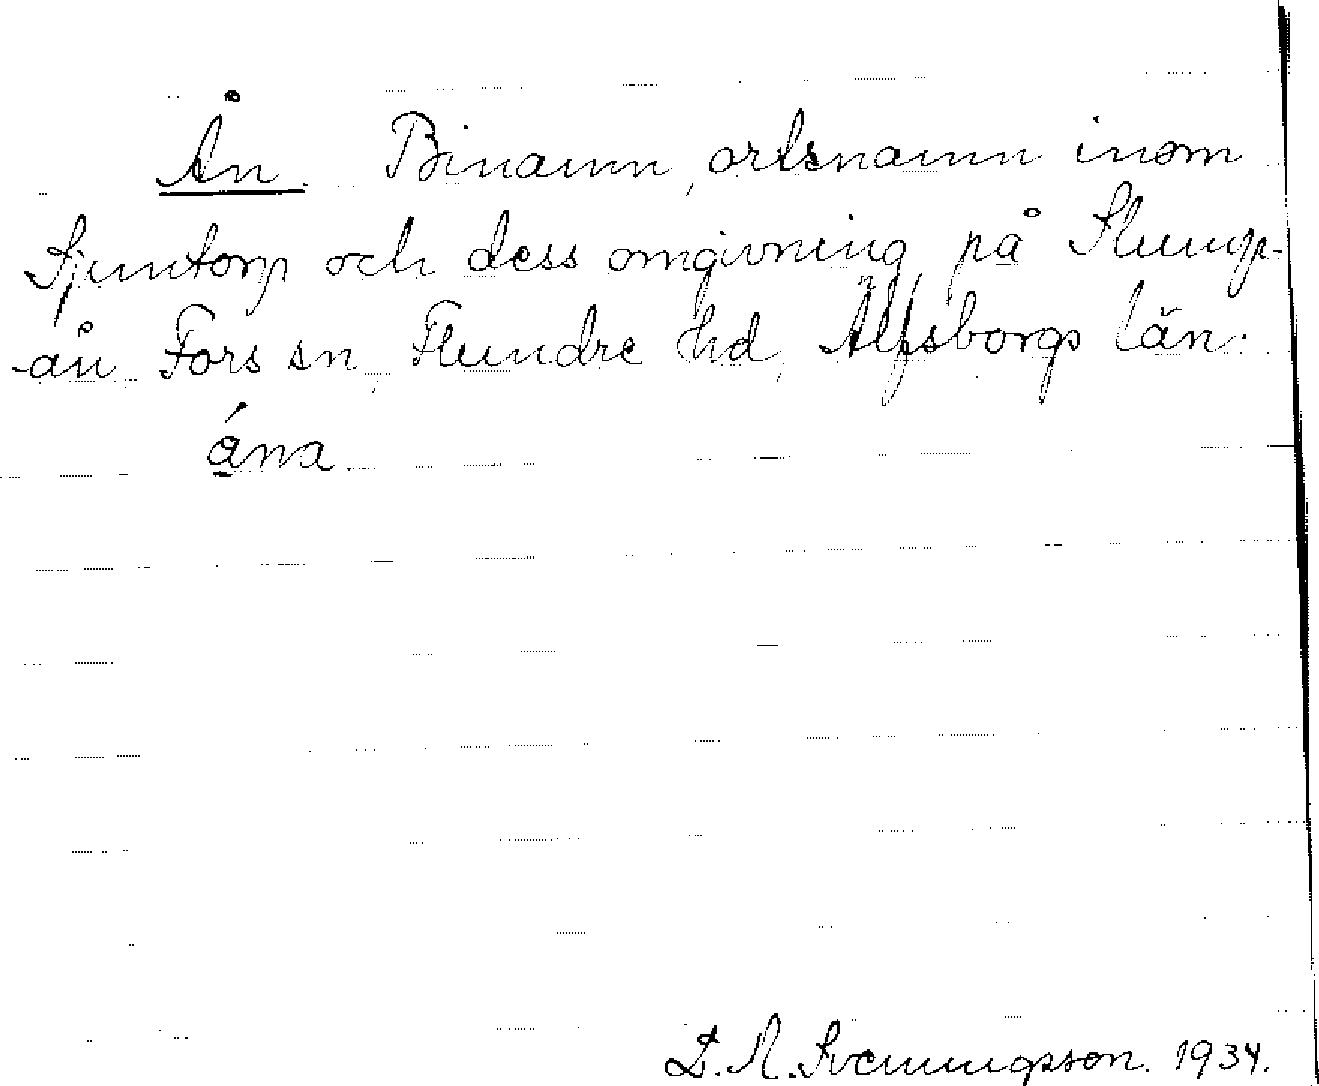 Ån. Binamn, ortsnamn inom
Sjuntorp och dess omgivning på Slump-
ån Fors sn, Flundre hd, Älfsborgs län.
ána.
D. A. Svenningsson. 1934.